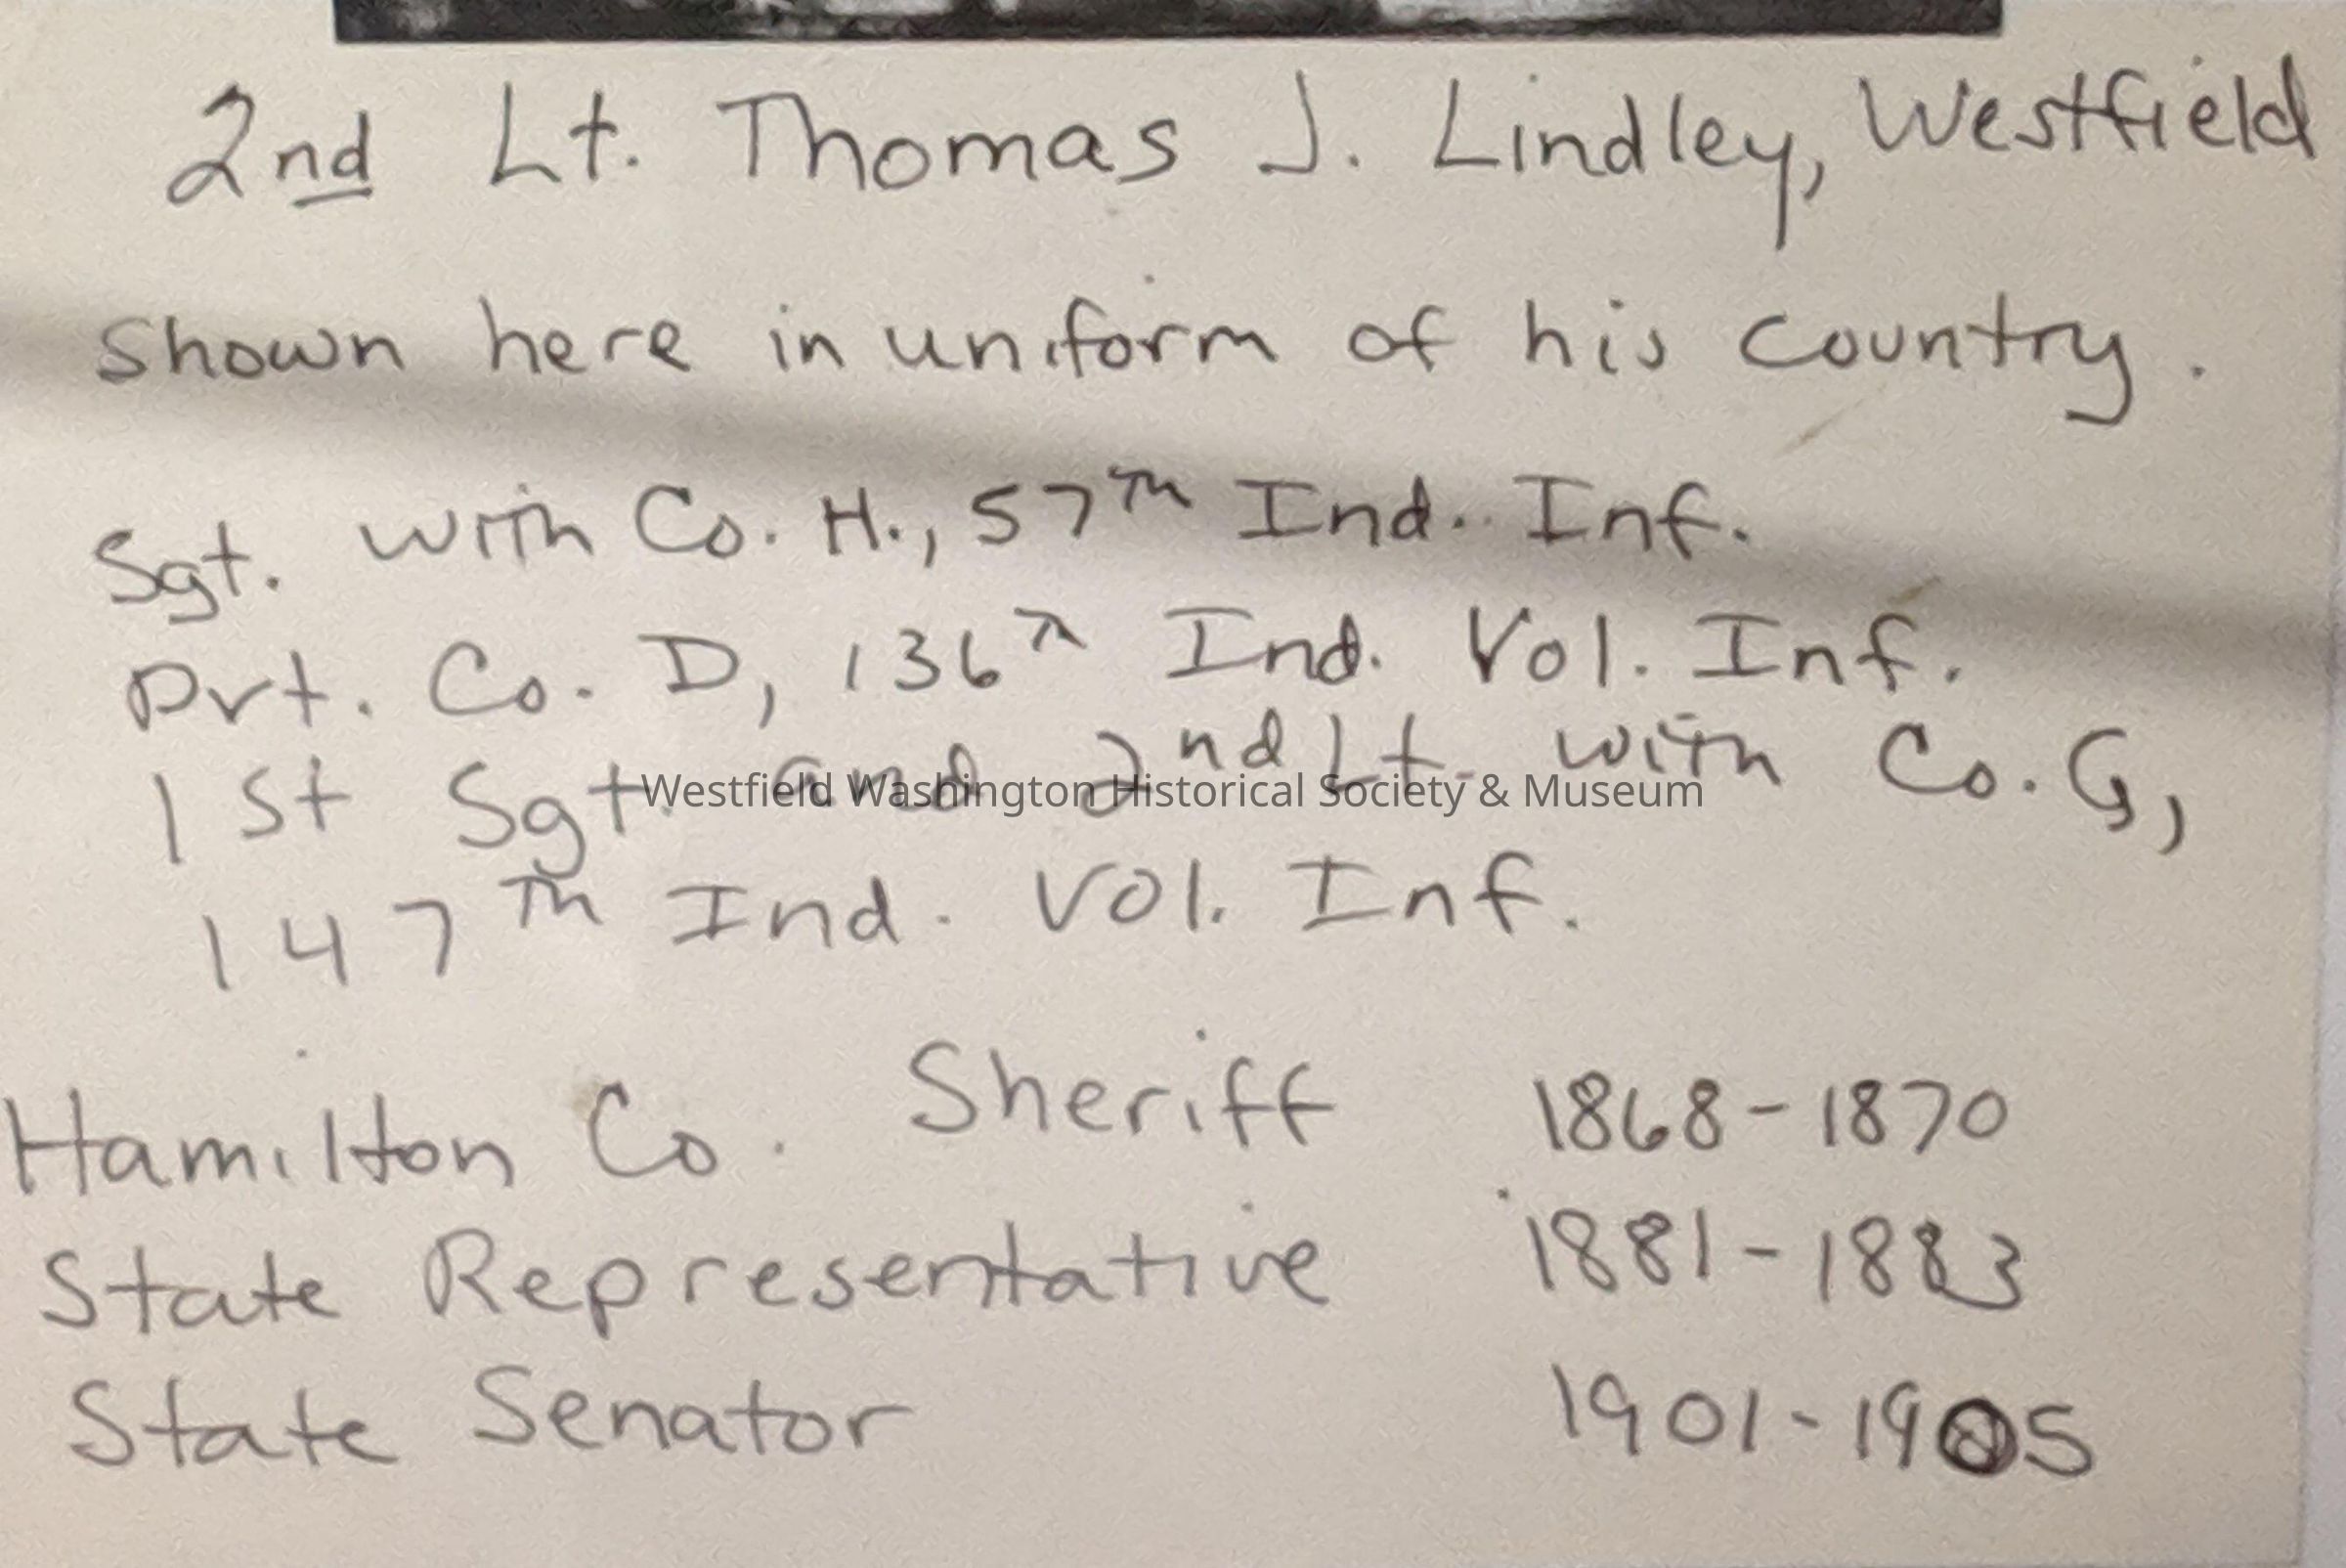 2nd Lt. Thomas J. Lindley, Westfield
Shown here in uniform of his country.
Sgt. with Co. H., 57th Ind. Inf.
Pvt. Co. D, 136th Ind. Vol. Inf.
1st Sgt. and 2nd Lt. with Co. G,
Westfield Washington Historical Society & Museum
147th Ind. Vol. Inf.
Hamilton Co. Sheriff 1868-1870
State Representative 1881-1883
State Senator 1901-1905